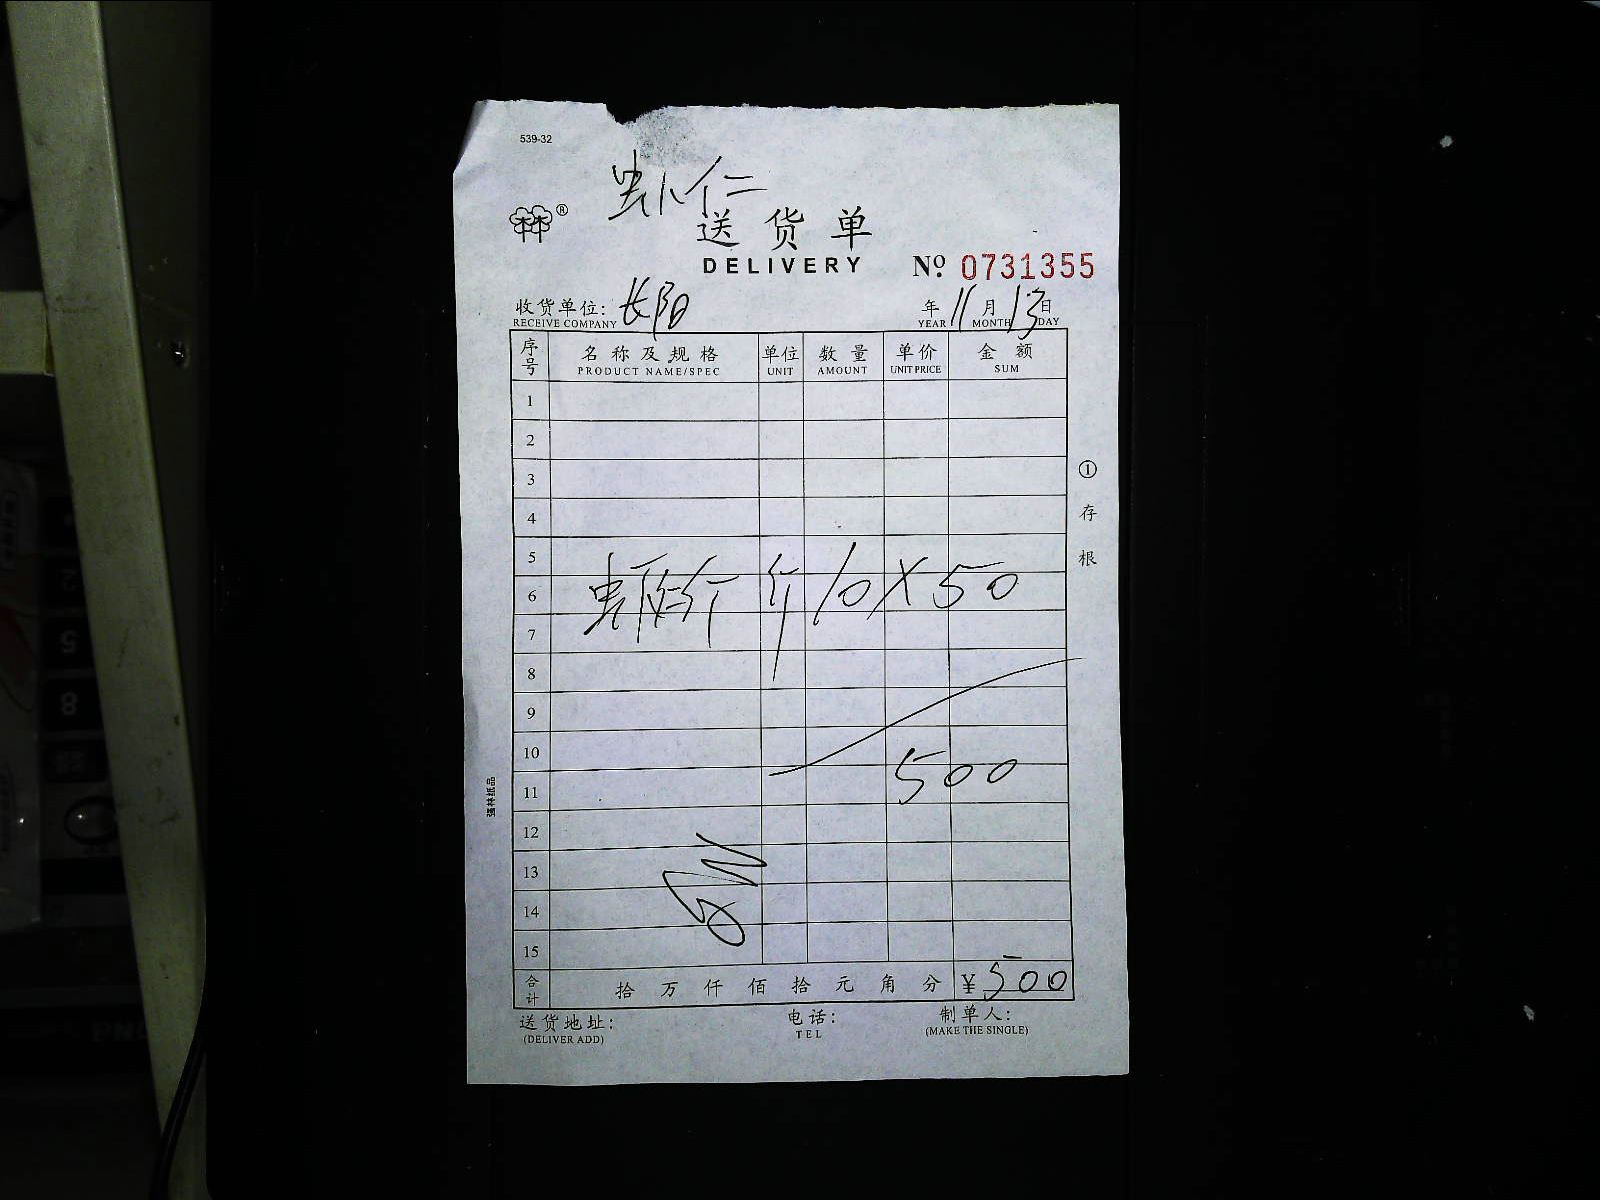 539-32
虾仁
林林®
送货单
DELIVERY
No. 0731355
收货单位: 长阳 年 11 月 13 日
RECEIVE COMPANY YEAR MONTH DAY
序号 名称及规格 单位 数量 单价 金额
PRODUCT NAME/SPEC UNIT AMOUNT UNIT PRICE SUM
1
2
3
4
5
6 10 X 50
7
8
9
10
500
11
12
13
14
15
合计 拾 万 仟 佰 拾 元 角 分 ¥ 500
送货地址: 电话: 制单人:
(DELIVER ADD) TEL (MAKE THE SINGLE)
① 存根
强林纸品
5
8